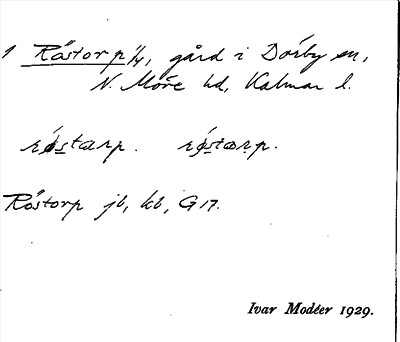 1 Röstorp 1/4, gård i Dörby sn,
N. Möre hd, Kalmar l.
røstarp. røstarp.
Röstorp jb, kb, G 17.
Ivar Modéer 1929.